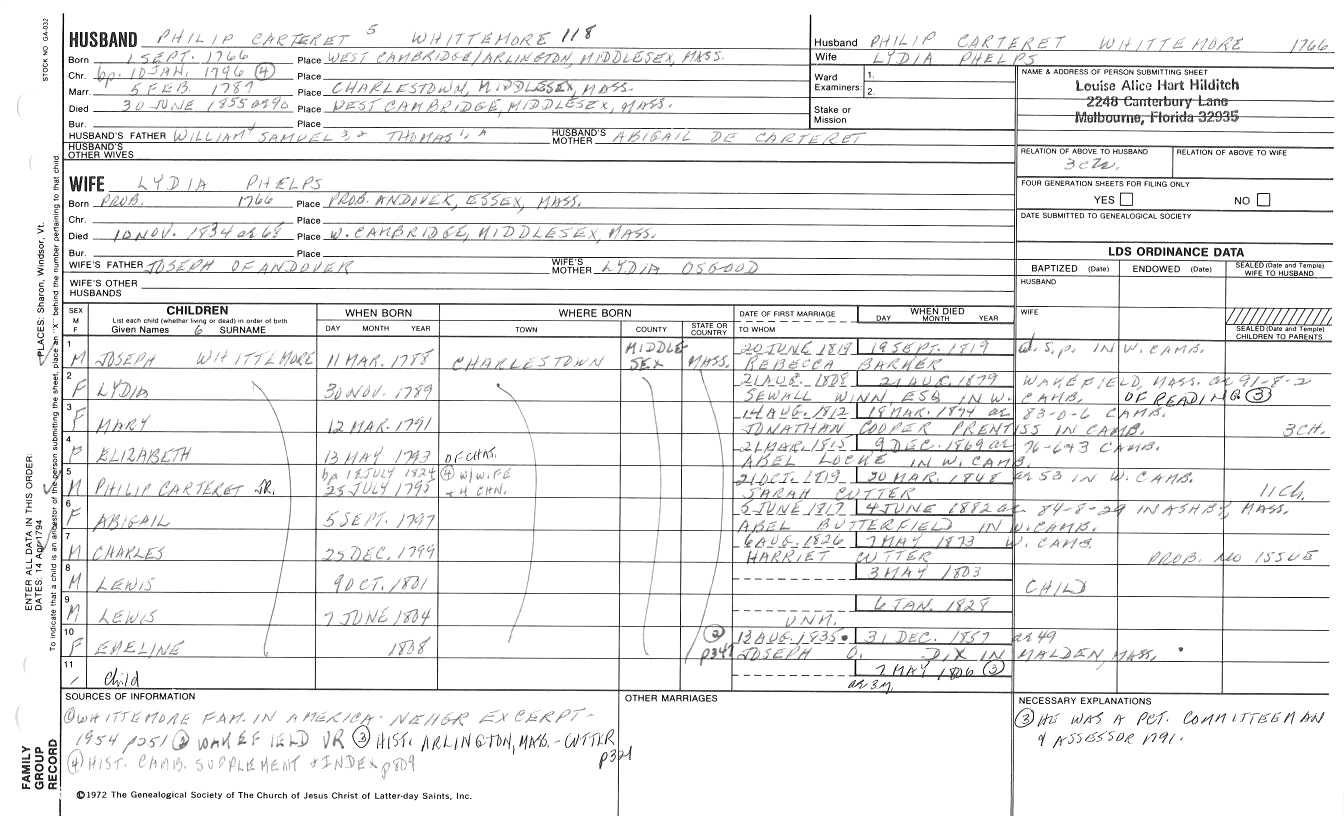 STOCK NO. GA-032
HUSBAND PHILIP CARTERET 5 WHITTEMORE 118
Born 1 SEPT. 1766 Place WEST CAMBRIDGE/ARLINGTON, MIDDLESEX, MASS.
Chr. bp. 10 JAN. 1796 (4) Place
Marr. 5 FEB. 1787 Place CHARLESTOWN, MIDDLESEX, MASS.
Died 30 JUNE 1855 ae 90 Place WEST CAMBRIDGE, MIDDLESEX, MASS.
Bur. Place
HUSBAND'S FATHER WILLIAM 4 SAMUEL 3, 2 THOMAS 1, A HUSBAND'S MOTHER ABIGAIL DE CARTERET
HUSBAND'S OTHER WIVES
Husband PHILIP CARTERET WHITTEMORE 1766
Wife LYDIA PHELPS
Ward Examiners: 1.
2.
Stake or Mission
NAME & ADDRESS OF PERSON SUBMITTING SHEET
Louise Alice Hart Hilditch
2248 Canterbury Lane
Melbourne, Florida 32935
RELATION OF ABOVE TO HUSBAND RELATION OF ABOVE TO WIFE
FOUR GENERATION SHEETS FOR FILING ONLY
YES NO
DATE SUBMITTED TO GENEALOGICAL SOCIETY
WIFE LYDIA PHELPS
Born PROB. 1766 Place PROB. ANDOVER, ESSEX, MASS.
Chr. Place
Died 10 NOV. 1834 ae 68 Place W. CAMBRIDGE, MIDDLESEX, MASS.
Bur. Place
WIFE'S FATHER JOSEPH OF ANDOVER WIFE'S MOTHER LYDIA OSGOOD
WIFE'S OTHER HUSBANDS
LDS ORDINANCE DATA
BAPTIZED (Date) ENDOWED (Date) SEALED (Date and Temple) WIFE TO HUSBAND
HUSBAND
WIFE
SEALED (Date and Temple) CHILDREN TO PARENTS
SEX M F CHILDREN WHEN BORN WHERE BORN DATE OF FIRST MARRIAGE WHEN DIED
List each child (whether living or dead) in order of birth
Given Names 6 SURNAME DAY MONTH YEAR TOWN COUNTY STATE OR COUNTRY TO WHOM DAY MONTH YEAR
1 M JOSEPH WHITTEMORE 11 MAR. 1788 CHARLESTOWN MIDDLESEX MASS. 20 JUNE 1819 19 SEPT. 1819 d.s.p. IN W. CAMB.
REBECCA BARKER
2 F LYDIA 30 NOV. 1789 21 AUG. 1808 21 AUG. 1879 WAKEFIELD, MASS. ae 91-8-2
SEWALL WINN, ESQ IN W. CAMB. OF READING (3)
3 F MARY 12 MAR. 1791 14 AUG. 1812 19 MAR. 1874 ae 83-0-6 CAMB.
JONATHAN COOPER PRENTISS IN CAMB. 3 CH.
4 F ELIZABETH 13 MAY 1793 OF CHN. 21 MAR. 1815 9 DEC. 1869 ae 76-6 CAMB.
ABEL LOCKE IN W. CAMB.
5 M PHILIP CARTERET JR. bp 18 JULY 1824 (4) W/WIFE + 4 CHN. 25 JULY 1795 21 OCT. 1819 30 MAR. 1848 ae 53 IN W. CAMB.
SARAH CUTTER 11 Ch.
6 F ABIGAIL 5 SEPT. 1797 5 JUNE 1817 4 JUNE 1882 ae 84-8-29 IN ASHBY, MASS.
ABEL BUTTERFIELD IN W. CAMB.
7 M CHARLES 25 DEC. 1799 6 AUG. 1826 7 MAY 1873 W. CAMB.
HARRIET CUTTER PROB. NO ISSUE
8 M LEWIS 9 OCT. 1801 3 MAY 1803 CHILD
9 M LEWIS 7 JUNE 1804 6 JAN. 1828
UNM.
10 F EMELINE 1808 (2) p347 13 AUG. 1835 31 DEC. 1857 ae 49
JOSEPH O. DIX IN MALDEN, MASS.
11 Child 7 MAY 1806 (3)
ae 3 m.
SOURCES OF INFORMATION
(1) WHITTEMORE FAM. IN AMERICA - NEHGR EXCERPT -
1954 p251 (2) WAKEFIELD VR (3) HIST. ARLINGTON, MASS. - CUTTER p321
(4) HIST. CAMB. SUPPLEMENT & INDEX p809
OTHER MARRIAGES
NECESSARY EXPLANATIONS
(3) HE WAS A PCT. COMMITTEEMAN
& ASSESSOR 1791.
©1972 The Genealogical Society of The Church of Jesus Christ of Latter-day Saints, Inc.
FAMILY GROUP RECORD
ENTER ALL DATA IN THIS ORDER:
DATES: 14 Apr 1794
PLACES: Sharon, Windsor, Vt.
To indicate that a child is an ancestor of the person submitting the sheet, place an "X" behind the number pertaining to that child.